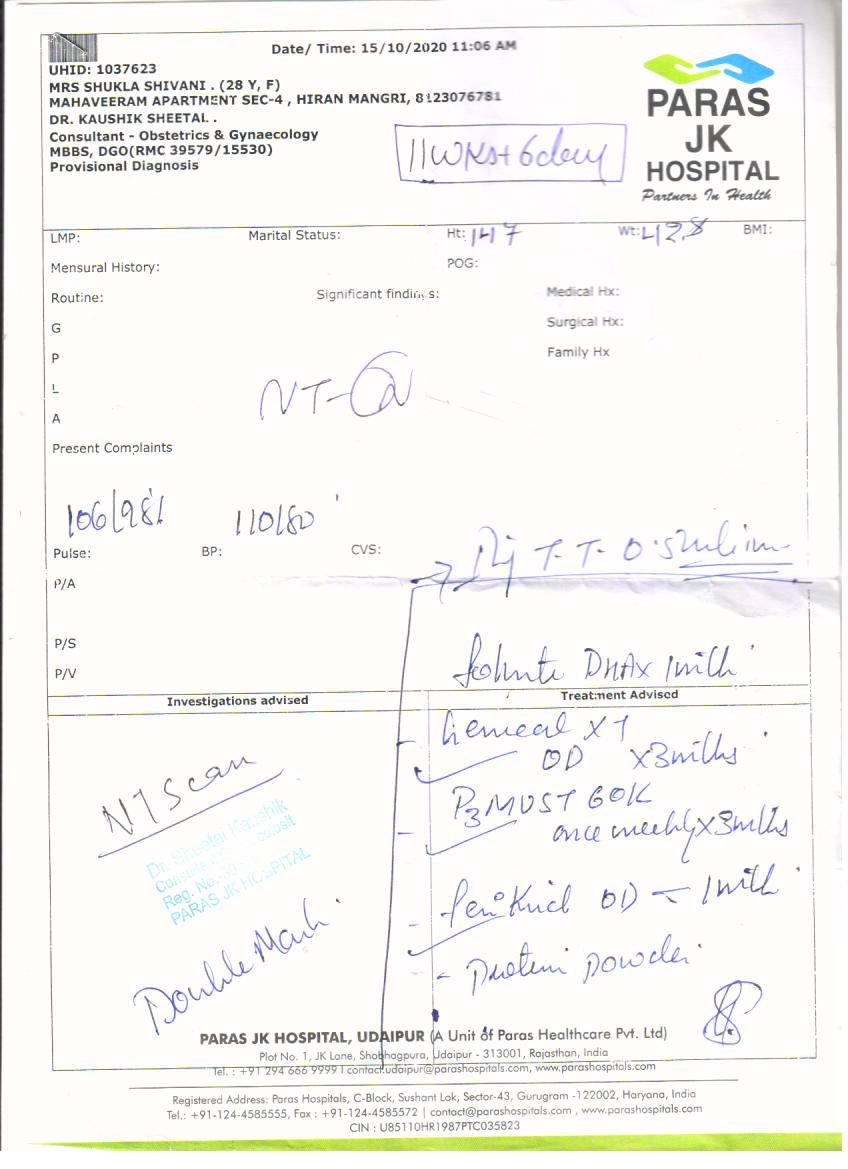 Date/ Time: 15/10/2020 11:06 AM
UHID: 1037623
MRS SHUKLA SHIVANI . (28 Y, F)
MAHAVEERAM APARTMENT SEC-4 , HIRAN MANGRI, 8123076781
DR. KAUSHIK SHEETAL .
Consultant - Obstetrics & Gynaecology
MBBS, DGO(RMC 39579/15530)
Provisional Diagnosis
11WKs+6day
PARAS
JK
HOSPITAL
Partners In Health
LMP: Marital Status: Ht: 147 Wt: 42.8 BMI:
Mensural History: POG:
Routine: Significant findings: Medical Hx:
G Surgical Hx:
P Family Hx
L
A
NT-
Present Complaints
106/98% 110/80
Pulse: BP: CVS:
Inj T-T- 0.5
P/A
P/S
P/V
DHAX 1mth
Investigations advised Treatment Advised
X 1
OD X3mths
D3MUST 60K
once weekly X3mths
OD - 1mth
- Protein powder
NT Scan
Dr. Sheetal Kaushik
Reg. No.
PARAS JK HOSPITAL
Double Mark
PARAS JK HOSPITAL, UDAIPUR (A Unit of Paras Healthcare Pvt. Ltd)
Plot No. 1, JK Lane, Shobhagpura, Udaipur - 313001, Rajasthan, India
Tel. : +91 294 666 9999 | contact.udaipur@parashospitals.com, www.parashospitals.com
Registered Address: Paras Hospitals, C-Block, Sushant Lok, Sector-43, Gurugram -122002, Haryana, India
Tel.: +91-124-4585555, Fax : +91-124-4585572 | contact@parashospitals.com , www.parashospitals.com
CIN : U85110HR1987PTC035823